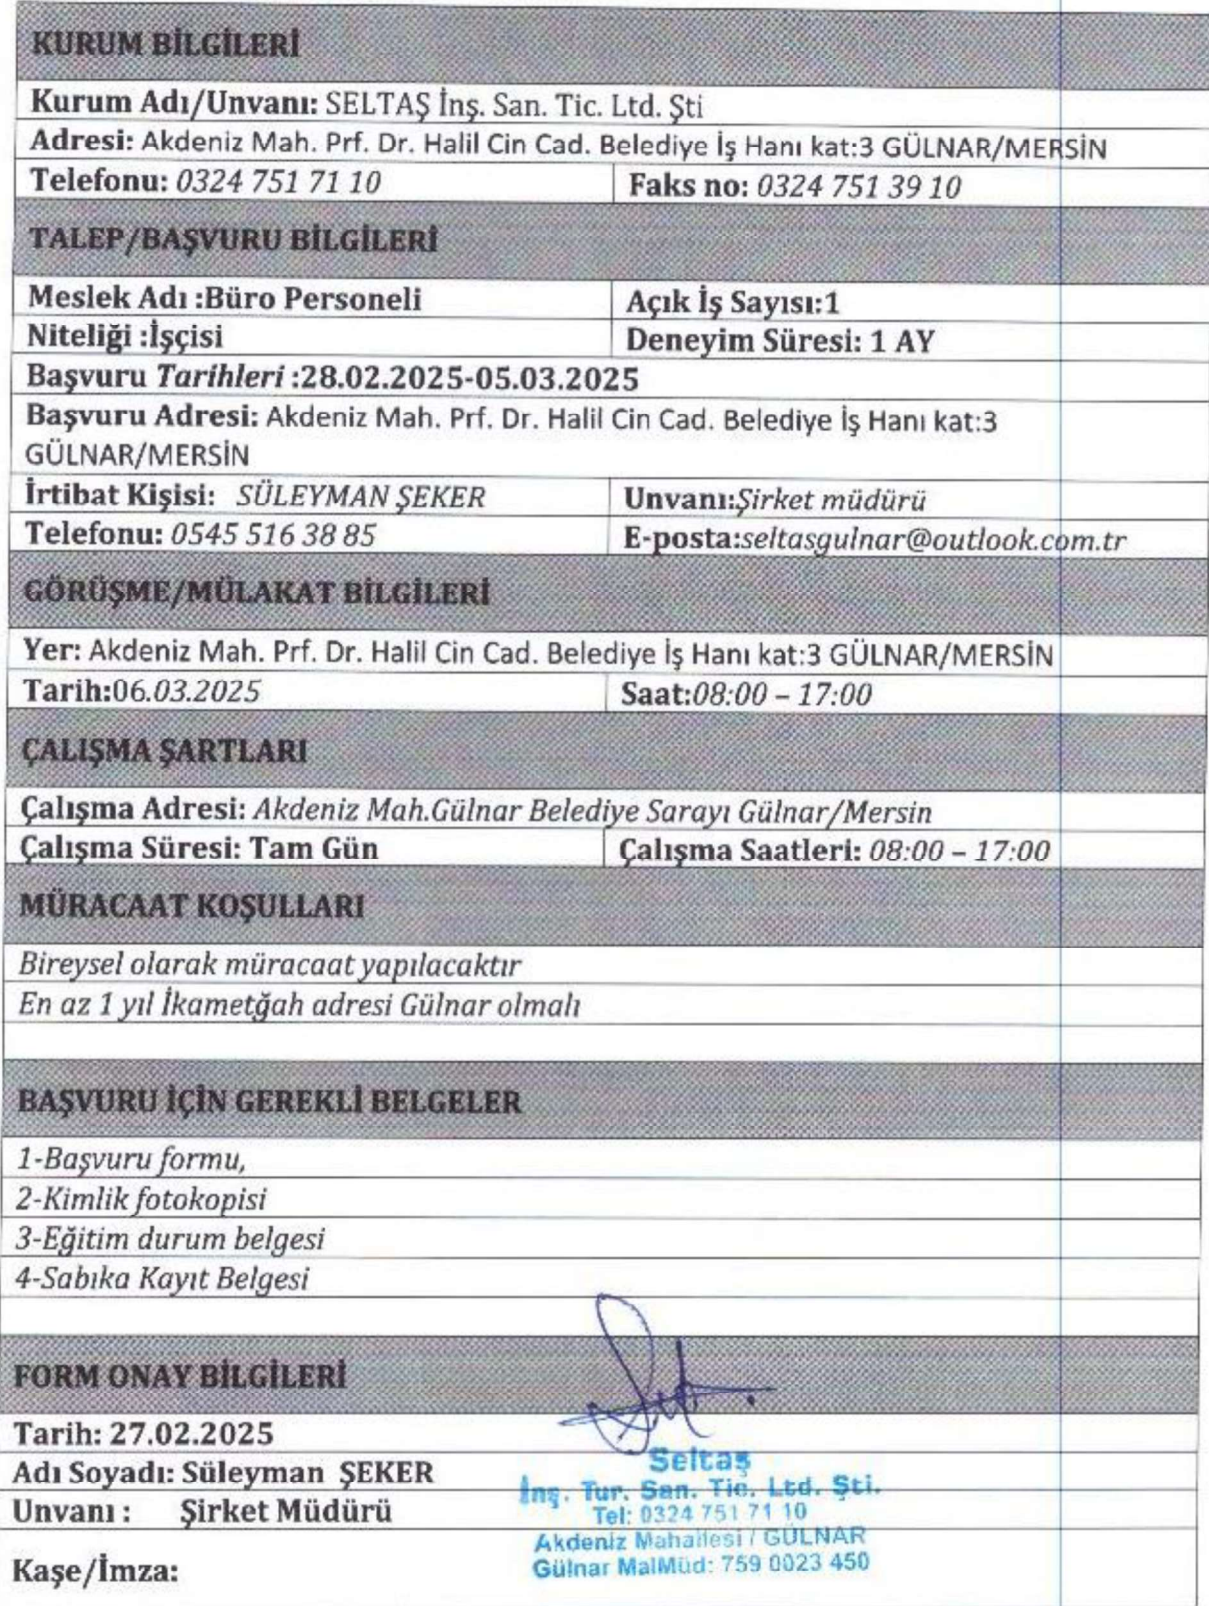 KURUM BİLGİLERİ
Kurum Adı/Unvanı: SELTAŞ İnş. San. Tic. Ltd. Şti
Adresi: Akdeniz Mah. Prf. Dr. Halil Cin Cad. Belediye İş Hanı kat:3 GÜLNAR/MERSİN
Telefonu: 0324 751 71 10 Faks no: 0324 751 39 10
TALEP/BAŞVURU BİLGİLERİ
Meslek Adı :Büro Personeli Açık İş Sayısı:1
Niteliği :İşçisi Deneyim Süresi: 1 AY
Başvuru Tarihleri :28.02.2025-05.03.2025
Başvuru Adresi: Akdeniz Mah. Prf. Dr. Halil Cin Cad. Belediye İş Hanı kat:3
GÜLNAR/MERSİN
İrtibat Kişisi: SÜLEYMAN ŞEKER Unvanı:Şirket müdürü
Telefonu: 0545 516 38 85 E-posta:seltasgulnar@outlook.com.tr
GÖRÜŞME/MÜLAKAT BİLGİLERİ
Yer: Akdeniz Mah. Prf. Dr. Halil Cin Cad. Belediye İş Hanı kat:3 GÜLNAR/MERSİN
Tarih:06.03.2025 Saat:08:00 – 17:00
ÇALIŞMA ŞARTLARI
Çalışma Adresi: Akdeniz Mah.Gülnar Belediye Sarayı Gülnar/Mersin
Çalışma Süresi: Tam Gün Çalışma Saatleri: 08:00 – 17:00
MÜRACAAT KOŞULLARI
Bireysel olarak müracaat yapılacaktır
En az 1 yıl İkametğah adresi Gülnar olmalı
BAŞVURU İÇİN GEREKLİ BELGELER
1-Başvuru formu,
2-Kimlik fotokopisi
3-Eğitim durum belgesi
4-Sabıka Kayıt Belgesi
FORM ONAY BİLGİLERİ
Tarih: 27.02.2025
Adı Soyadı: Süleyman ŞEKER
Unvanı : Şirket Müdürü
Kaşe/İmza:
Seltaş
İnş. Tur. San. Tic. Ltd. Şti.
Tel: 0324 751 71 10
Akdeniz Mahallesi / GÜLNAR
Gülnar MalMüd: 759 0023 450